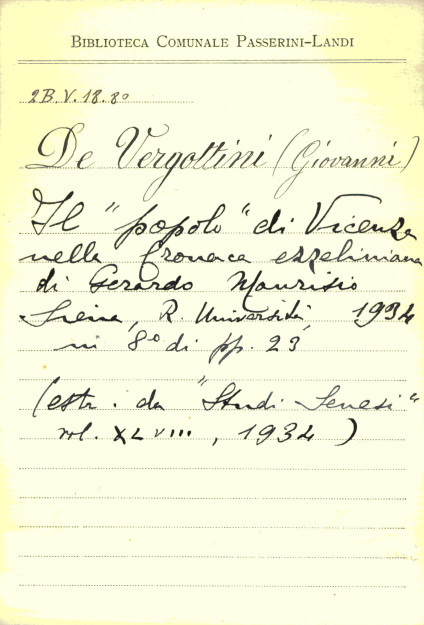 BIBLIOTECA COMUNALE PASSERINI-LANDI
2B.V.18.8º
De Vergottini (Giovanni)
Il "popolo" di Vicenza
nella cronaca ezzeliniana
di Gerardo Maurisio
Siena, R. Università, 1934
in 8º di pp. 23
(estr. da "Studi Senesi"
vol. XLVIII, 1934)